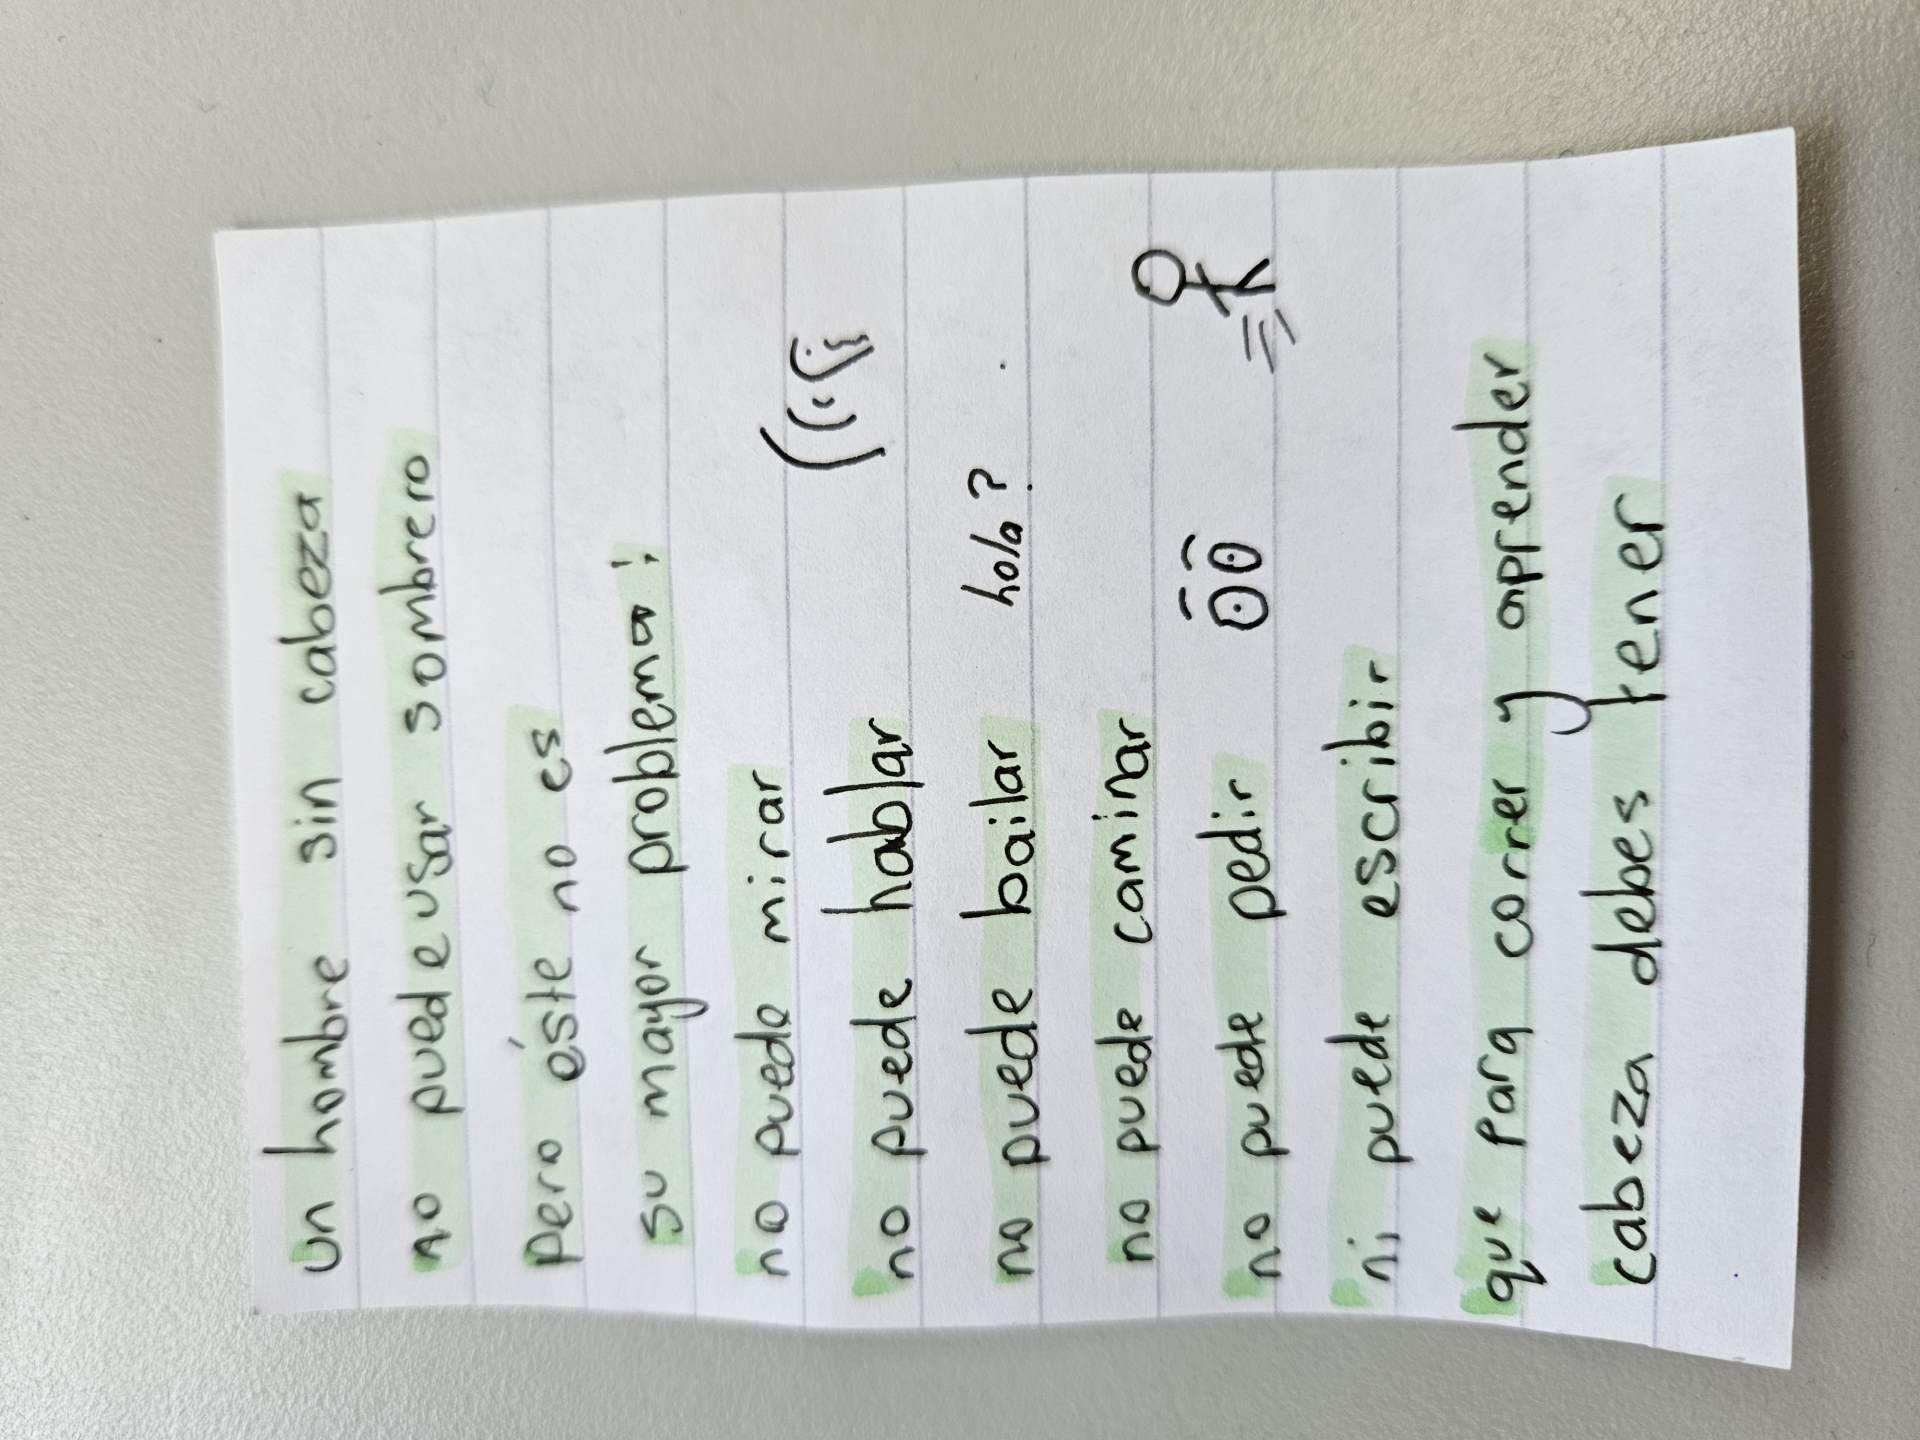 un hombre sin cabeza
no puede usar sombrero
pero éste no es
su mayor problema:
no puede mirar
no puede hablar
no puede bailar hola?
no puede caminar
no puede pedir
ni puede escribir
que para correr y aprender
cabeza debes tener